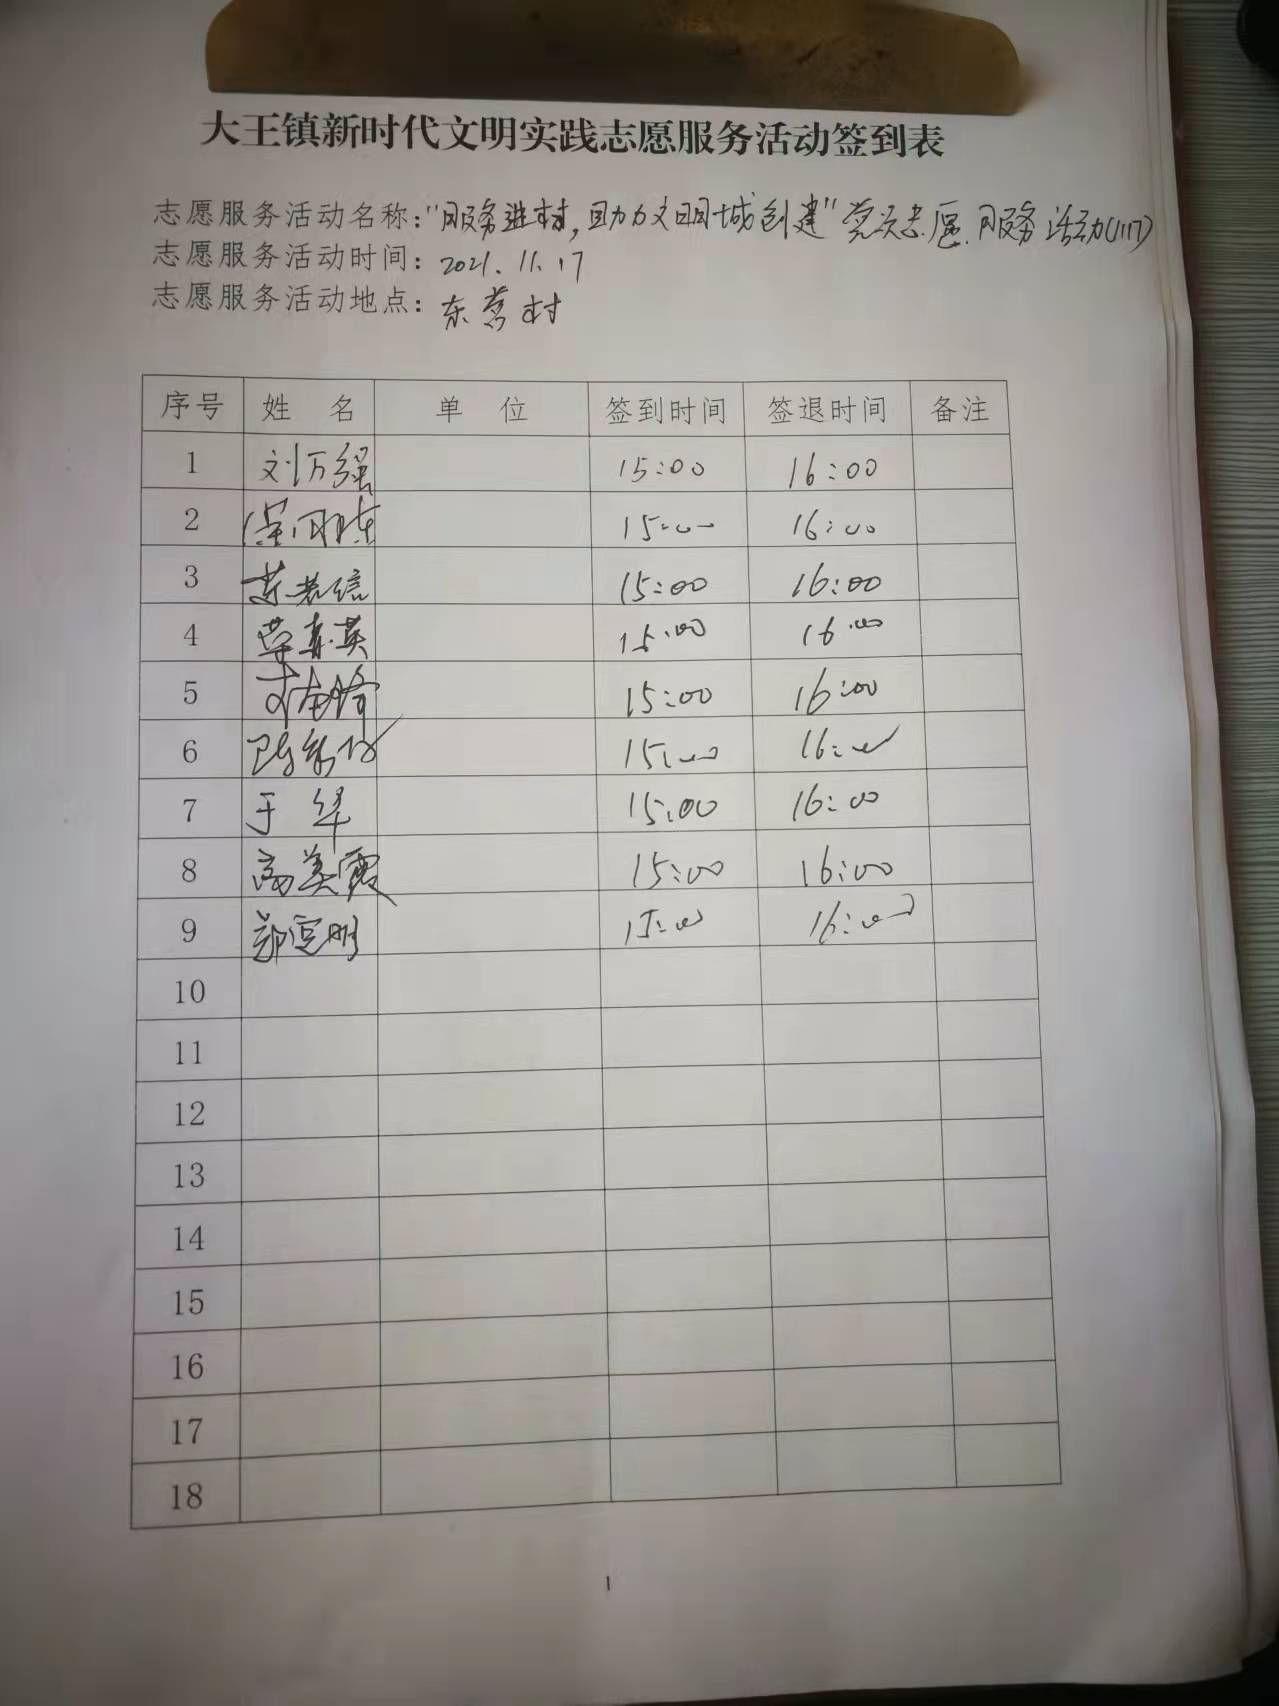 大王镇新时代文明实践志愿服务活动签到表
志愿服务活动名称:"服务进村,助力文明城创建"党员志愿服务活动(1117)
志愿服务活动时间:2021.11.17
志愿服务活动地点:东营村
序号 姓 名 单 位 签到时间 签退时间 备注
1 刘万强 15:00 16:00
2 15:00 16:00
3 15:00 16:00
4 15:00 16:00
5 15:00 16:00
6 15:00 16:00
7 于华 15:00 16:00
8 高美霞 15:00 16:00
9 15:00 16:00
10
11
12
13
14
15
16
17
18
1